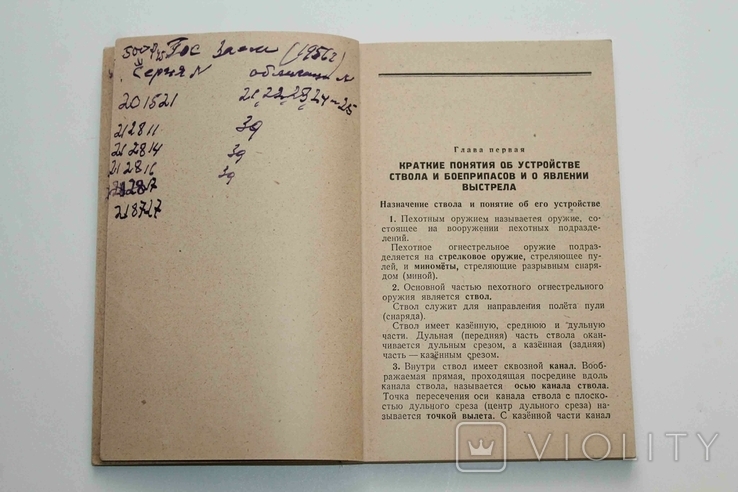 500 Р. Гос Заем (1956г)
Серия N облигации N
201521 21,22,23,24-25
212811 39
212814 39
212816 39
218727
Глава первая
КРАТКИЕ ПОНЯТИЯ ОБ УСТРОЙСТВЕ
СТВОЛА И БОЕПРИПАСОВ И О ЯВЛЕНИИ
ВЫСТРЕЛА
Назначение ствола и понятие об его устройстве
1. Пехотным оружием называется оружие, со-
стоящее на вооружении пехотных подразде-
лений.
Пехотное огнестрельное оружие подраз-
деляется на стрелковое оружие, стреляющее пу-
лей, и миномёты, стреляющие разрывным снаря-
дом (миной).
2. Основной частью пехотного огнестрельного
оружия является ствол.
Ствол служит для направления полёта пули
(снаряда).
Ствол имеет казённую, среднюю и дульную
части. Дульная (передняя) часть ствола окан-
чивается дульным срезом, а казённая (задняя)
часть — казённым срезом.
3. Внутри ствол имеет сквозной канал. Вооб-
ражаемая прямая, проходящая посредине вдоль
канала ствола, называется осью канала ствола.
Точка пересечения оси канала ствола с плоско-
стью дульного среза (центр дульного среза) на-
зывается точкой вылета. С казённой части канал
VIOLITY